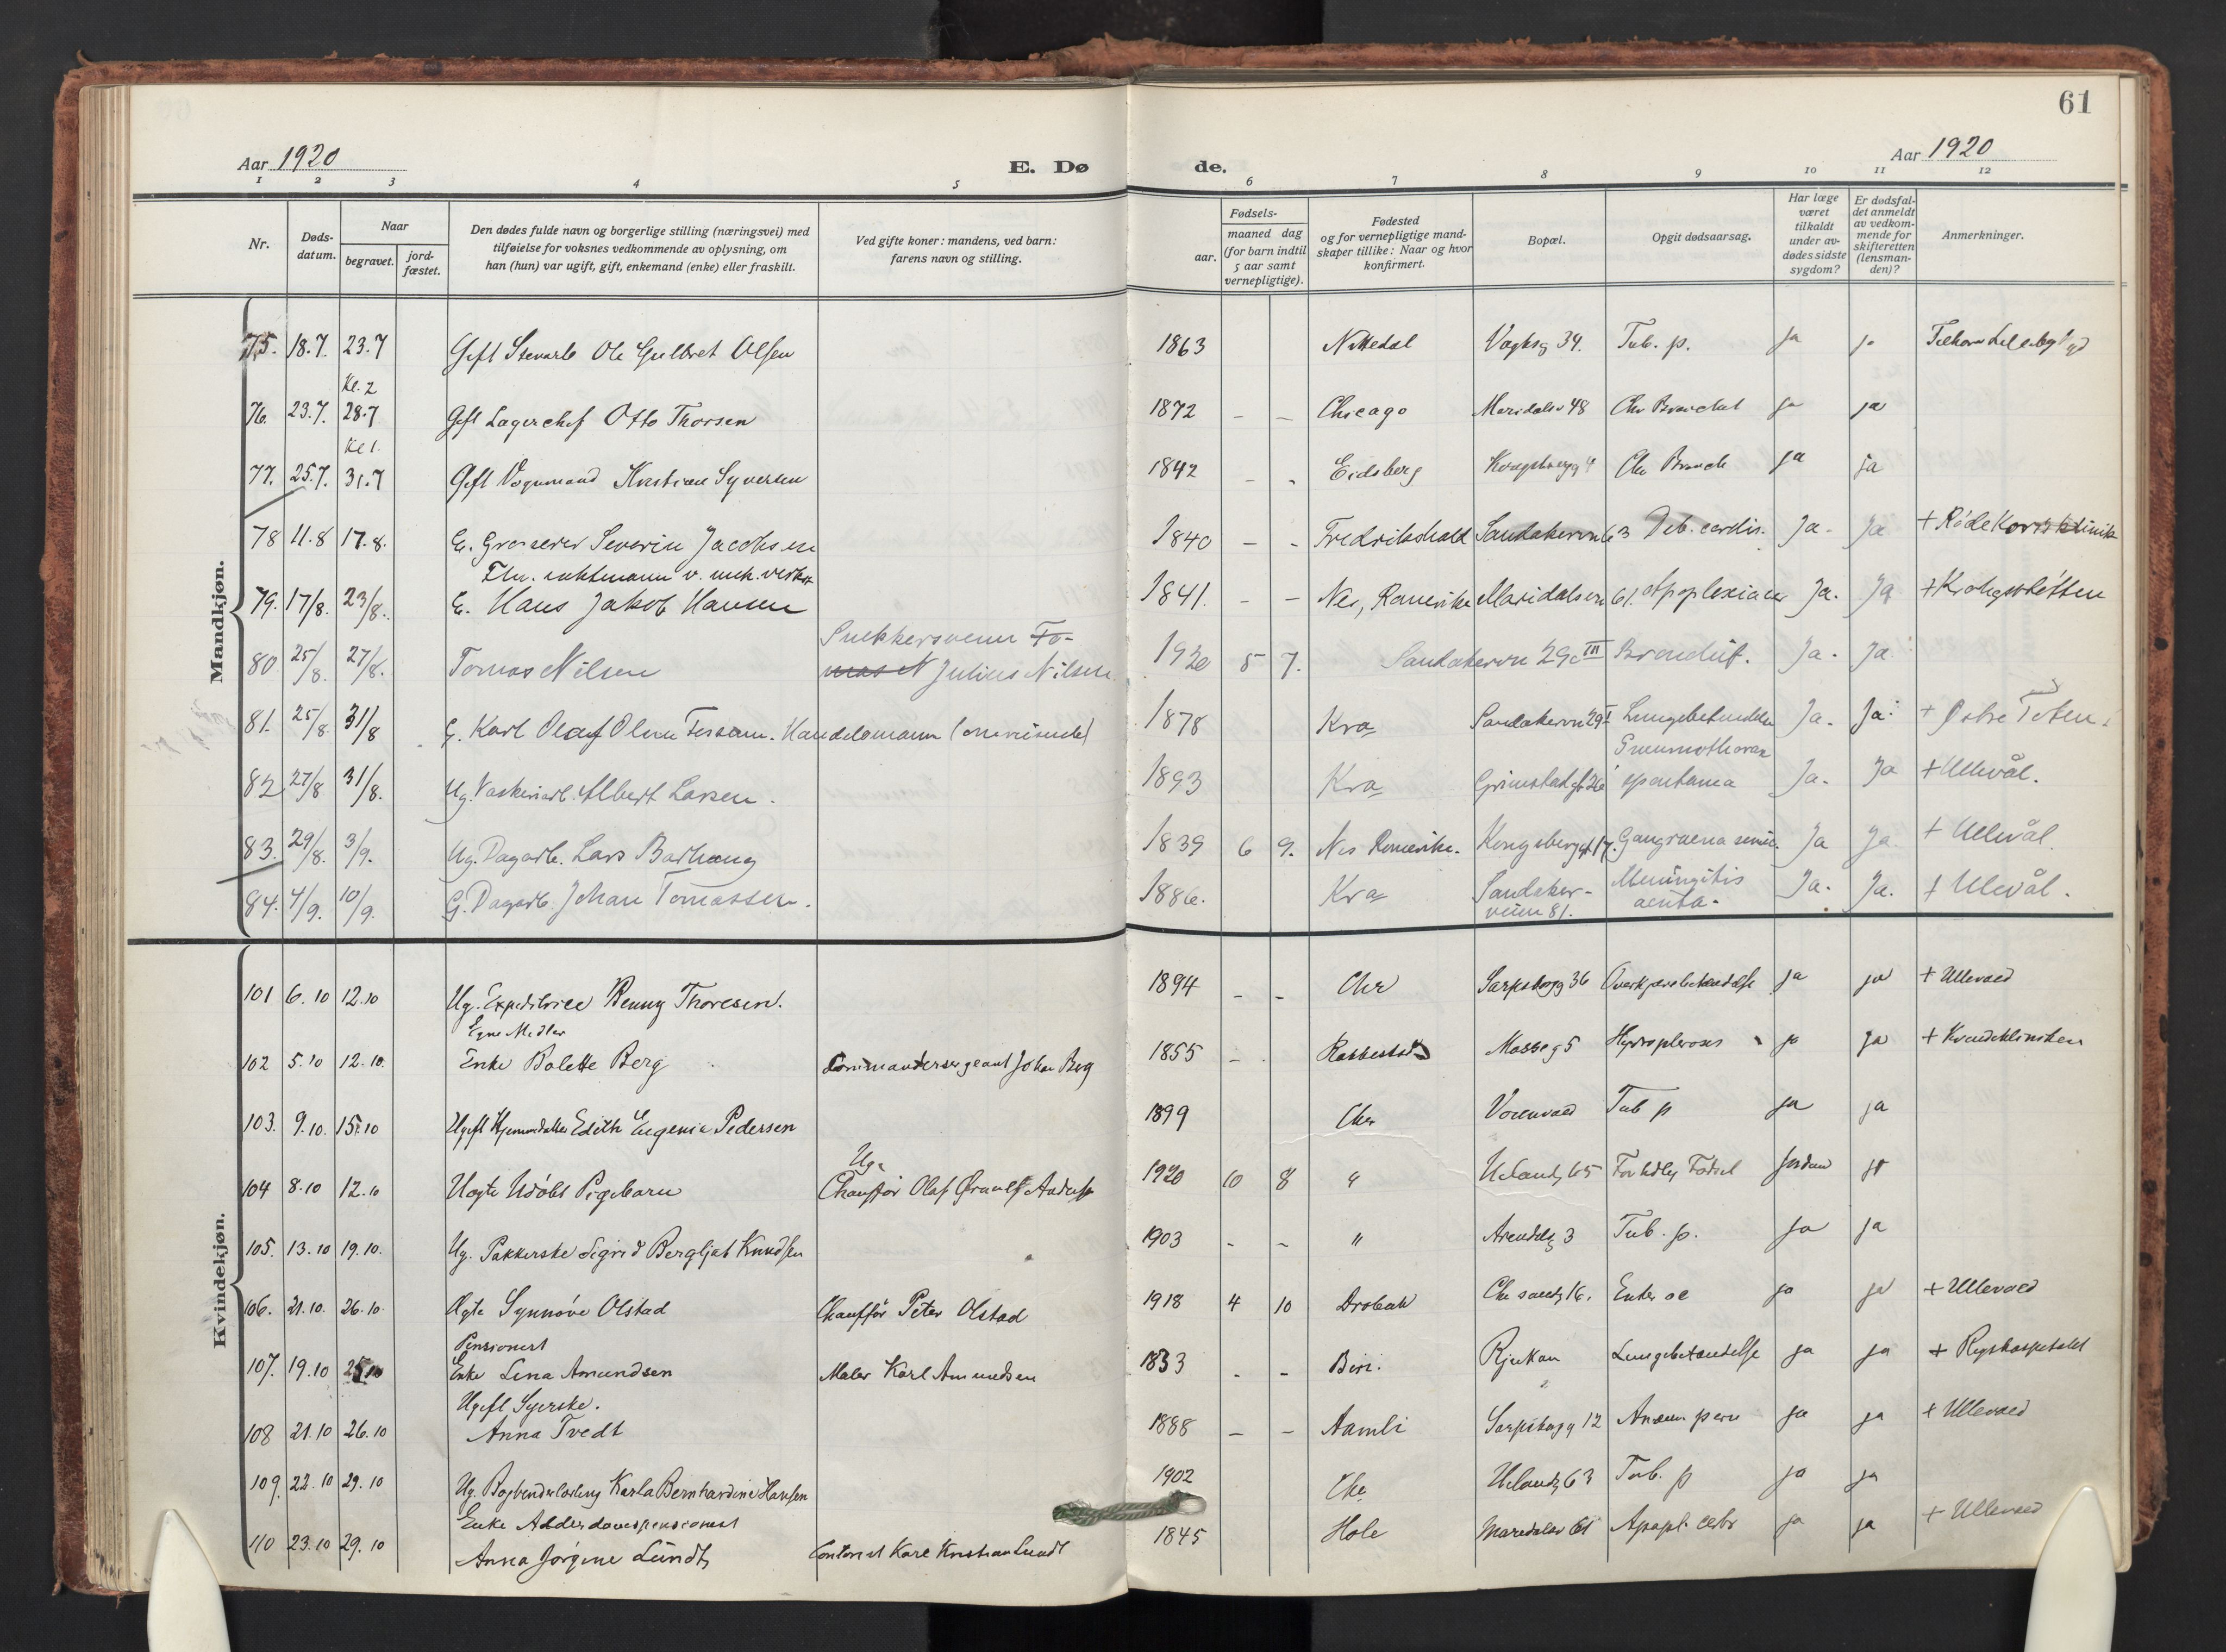 61
Aar 1920
E. Dø
de.
Aar 1920
1 2 3 4 5 6 7 8 9 10 11 12
Nr.
Døds-
datum.
Naar
begravet.
jord-
fæstet.
Den dødes fulde navn og borgerlige stilling (næringsvei) med
tilføielse for voksnes vedkommende av oplysning, om
han (hun) var ugift, gift, enkemand (enke) eller fraskilt.
Ved gifte koner: mandens, ved barn:
farens navn og stilling.
Fødsels-
aar.
maaned dag
(for barn indtil
5 aar samt
vernepligtige).
Fødested
og for vernepligtige mand-
skaper tillike: Naar og hvor
konfirmert.
Bopæl.
Opgit dødsaarsag.
Har læge
været
tilkaldt
under av-
dødes sidste
sygdom?
Er dødsfal-
det anmeldt
av vedkom-
mende for
skifteretten
(lensman-
den)?
Anmerkninger.
Mandkjøn.
75. 18.7. 23.7 Gift Ole Gulbret Olsen 1863 Nittedal 34. Tub. p. ja ja
Kl. 2
76. 23.7. 28.7 Gift Lagerchef Otto Thorsen 1872 – – Chicago Maridalsv 48 ja ja
Kl 1.
77. 25.7. 31.7 Gift Vognmand Kristian Syversen 1842 – - Eidsberg ja ja
78 11.8 17.8. E. Grosserer Severin Jacobsen 1840 – - Fredrikshald Sandakervn 63 Deb. cordis. Ja. Ja + Røde Kors klinik
79. 17/8. 23/8. E. Hans Jakob Hansen 1841. – – Nes, Romerike Maridalsvn 61. Apoplexia Ja. Ja + Krohgstøtten
80 25/8. 27/8. Tomas Nilsen Snekkersvenn To-
mas N Julius Nilsen 1920 5 7. Sandakervn 29c III Ja. Ja
81. 25/8. 31/8 G. Karl Olaf Olsen Handelsmann (omreisende) 1878 Kra Sandakervn 29 I Lungebetendelse Ja. Ja + Østre Toten.
Pneumothorax
82 27/8 31/8. Ug. Vaskeriarb. Albert Larsen. 1893 Kra Grimstadgt 26 spontanea Ja. Ja + Ullevål.
83. 29/8. 3/9. Ug. Dagarb. Lars 1839 6 9. Nes Romerike. Kongsberggt 17. Gangraena Ja Ja + Ullevål.
84. 4/9. 10/9. G. Dagarb. Johan Tomassen. 1886. Kra Sandaker-
veien 81. Meningitis
acuta. Ja. Ja. + Ulevål.
Kvindekjøn.
101 6.10 12.10 Ug. Expeditrice Benny Thoresen. 1894 – - Chr Sarpsborgg 36 ja ja + Ullevaal
Egne Midler
102 5.10 12.10. Enke Bolette Berg Johan Berg 1855 – Rakkestad Mosseg 5 ja ja + Kvindeklinikken
103. 9.10. 15.10 Ugift Edith Eugenie Pedersen 1899 Chr Tub p ja ja
Ug.
104 8.10 12.10 Uægte Udøbt Pigebarn Chauffør Olaf 1920 10 8 " Uelandsg 65 Fortidlig Fødsel Jordmor ja
105. 13.10 19.10. Ug. Pakkerske Sigrid Bergljot Knudsen 1903 - - " Arendalsg 3 Tub. p. ja ja
106. 21.10. 26.10. Ægte Synnøve Olstad Chauffør Peter Olstad 1918 4 10 Drobak ja ja + Ullevaal
Pensionist
107. 19.10 25.10 Enke Lina Amundsen Maler Karl Amundsen 1833 - - Biri. Rjukan Lungebetændelse ja ja + Rigshospitalet
Ugift Syerske.
108 21.10 26.10 Anna Tvedt 1888 – – Aamli Sarpsborgg 12 ja ja + Ullevaal
109. 22.10 29.10 Ug. Karla Bernhardine Hansen 1902 Chr Uelandsg 63 Tub. p ja ja
Enke Alderdomspensionist
110 23.10 29.10 Anna Jørgine Lundt Kontorist Karl Kristian Lundt 1845 Hole Maridalsv 61 Apopl. cebr ja ja + Ullevaal